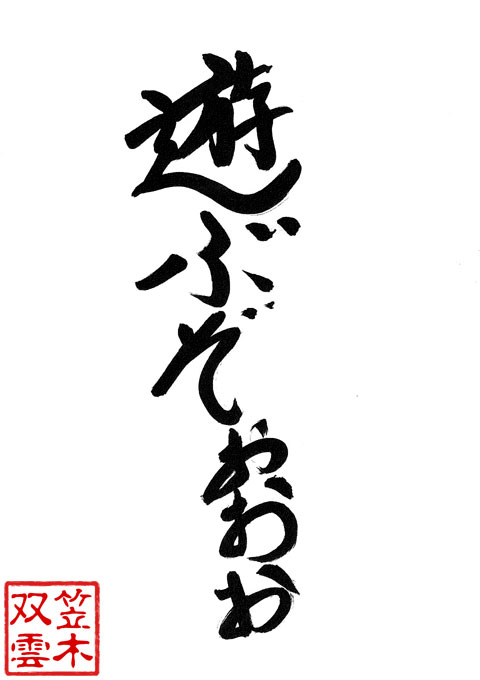 遊ぶぞおおお
笠木
双雲